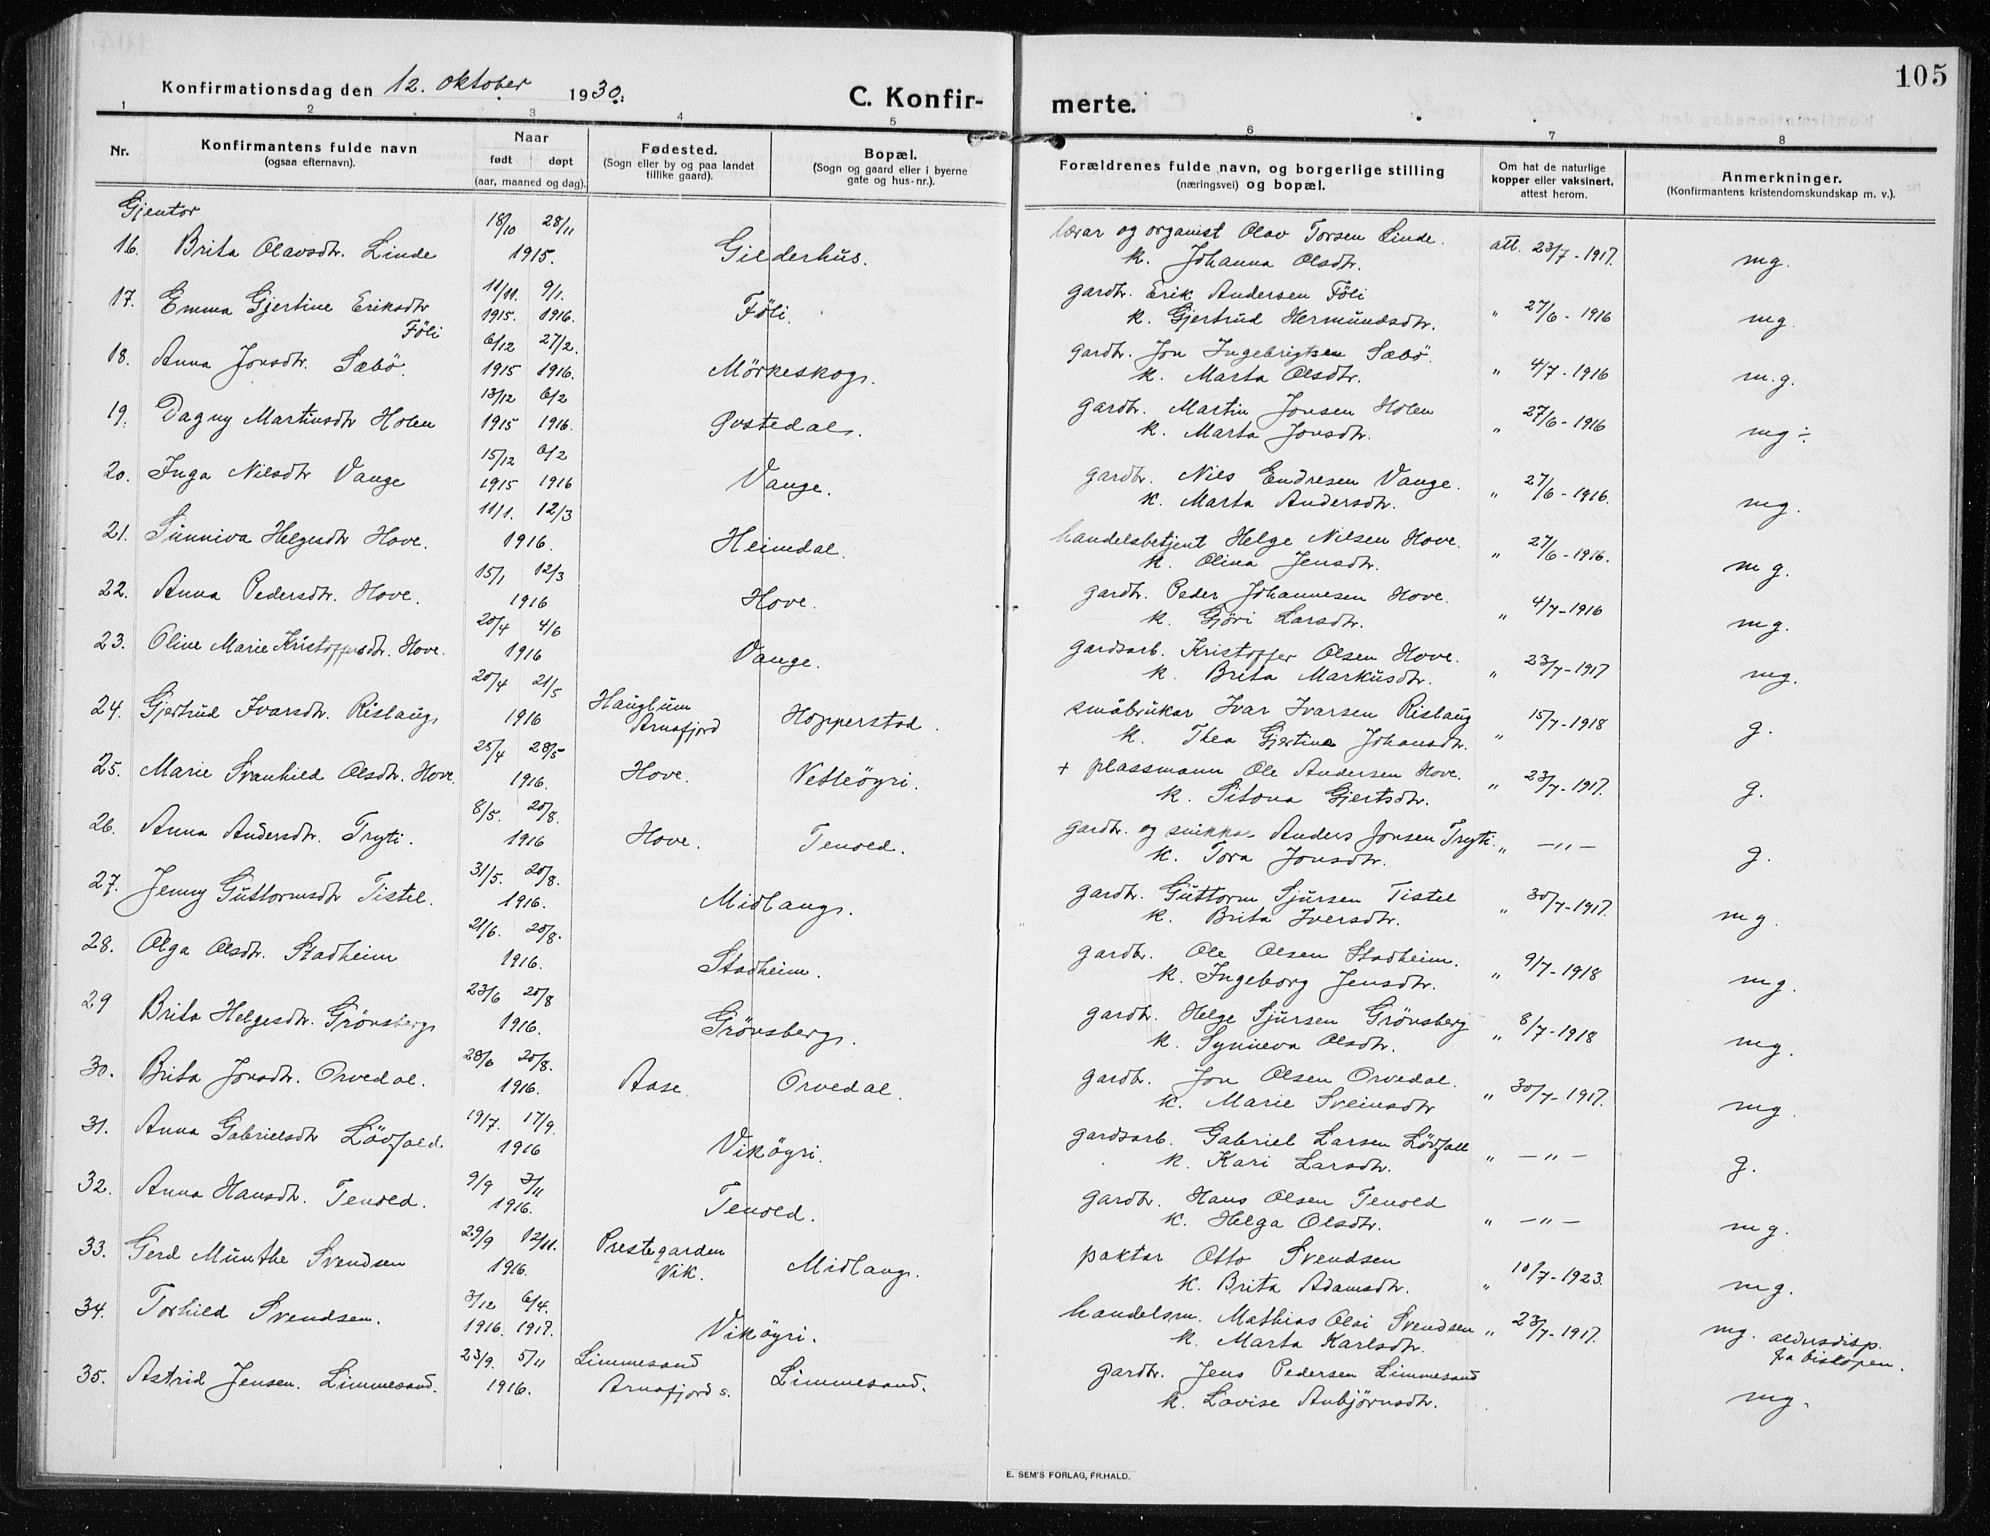 105
Konfirmationsdag den 12. oktober 1930.
C. Konfirmerte.
1 2 3 4 5 6 7 8
Nr.
Konfirmantens fulde navn
(ogsaa efternavn).
Naar
født døpt
(aar, maaned og dag).
Fødested.
(Sogn eller by og paa landet
tillike gaard).
Bopæl.
(Sogn og gaard eller i byerne
gate og hus-nr.).
Forældrenes fulde navn, og borgerlige stilling
(næringsvei) og bopæl.
Om hat de naturlige
kopper eller vaksinert,
attest herom.
Anmerkninger.
(Konfirmantens kristendomskundskap m. v.).
Gjentor
16. Brita Olavsdtr. Linde 18/10 28/11 1915. Gilderhus. lærar og organist Olav Torsen Linde. k. Johanna Olsdtr. att. 23/7-1917. mg.
17. Emma Gjertine Eriksdtr Föli 11/11. 1915. 9/1. 1916. Föli. gardbr. Erik Andersen Föli k. Gjertrud Hermundsdtr. " 27/6-1916 mg.
18. Anna Jonsdtr. Sæbö. 6/12 1915 27/2. 1916. Mörkeskog. gardbr. Jon Ingebrigtsen Sæbö. k. Marta Olsdtr. " 4/7-1916 m.g.
19. Dagny Martinsdtr Holen 13/12 1915 6/2 1916. Ovstedal. gardbr. Martin Jonsen Holen k. Marta Jonsdtr. " 27/6-1916 mg÷.
20. Inga Nilsdtr Vange 15/12 1915 6/2 1916 Vange. gardbr. Nils Endresen Vange. k. Marta Andersdtr. " 27/6-1916. mg.
21. Sunniva Helgesdtr Hove. 11/1. 12/3 1916. Heimdal. handelsbetjent Helge Nilsen Hove. k. Olina Jensdtr. " 27/6-1916. mg.
22. Anna Pedersdtr. Hove. 15/1 12/3 1916 Hove. gardbr. Peder Johannesen Hove. k. Gjöri Larsdtr. " 4/7-1916 mg.
23. Oline Marie Kristoffersdtr. Hove. 20/4 4/6 1916 Vange. gardsarb. Kristoffer Olsen Hove. k. Brita Markusdtr. " 23/7-1917 mg.
24. Gjertrud Ivarsdtr. Rislaug 20/4 21/5 1916 Hauglum Arnafjord Hopperstad. småbrukar Ivar Ivarsen Rislaug k. Thea Gjertine Johansdtr. " 15/7-1918 g.
25. Marie Svanhild Olsdtr. Hove. 25/4 28/5 1916. Hove. Vetleöyri. + plassmann Ole Andersen Hove. k. Sitona Gjertsdtr. " 23/7-1917. g.
26. Anna Andersdtr. Tryti. 8/5. 20/8. 1916 Hove. Tenold. gardbr. og snikkar Anders Jonsen Tryti. k. Tora Jonsdtr. " —"— g.
27. Jenny Guttormsdtr Tistel. 31/5. 20/8. 1916. Midlang. gardbr. Guttorm Sjursen Tistel k. Brita Iversdtr. " 30/7-1917. mg.
28. Olga Olsdtr. Stadheim 21/6. 20/8. 1916. Stadheim. gardbr. Ole Olsen Stadheim. k. Ingeborg Jensdtr. " 9/7-1918 mg.
29 Brita Helgesdtr. Grönsberg 23/6 20/8 1916. Grönsberg. gardbr. Helge Sjursen Grönsberg k. Synneva Olsdtr. " 8/7-1918 mg.
30. Brita Jonsdtr. Orvedal. 28/6 20/8. 1916. Aase. Orvedal. gardbr. Jon Olsen Orvedal. k. Marie Sveinsdtr " 30/7-1917. mg.
31. Anna Gabrielsdtr Lövfald. 19/7. 17/9. 1916 Viköyri. gardsarb. Gabriel Larsen Lövfall k. Kari Larsdtr. " —"— g.
32. Anna Hansdtr. Tenold. 9/9 3/11 1916. Tenold. gardbr. Hans Olsen Tenold k. Helga Olsdtr. " —"— mg.
33. Gerd Munthe Svendsen 29/9 12/11. 1916. Prestegarden Vik. Midlang. paktar Otto Svendsen k. Brita Adamsdtr. " 10/7-1923. mg.
34. Torhild Svendsen. 3/12 1916. 6/4. 1917. Viköyri. handelsm. Mathias Olai Svendsen k. Marta Karlsdtr. " 23/7-1917. mg. aldersdisp. fra biskopen.
35. Astrid Jensen. Limmesand. 23/9. 5/11 1916. Limmesand Arnafjord s. Limmesand. gardbr. Jens Pedersen Limmesand k. Lovise Anbjörnsdtr. mg.
E. SEM'S FORLAG, FR.HALD.